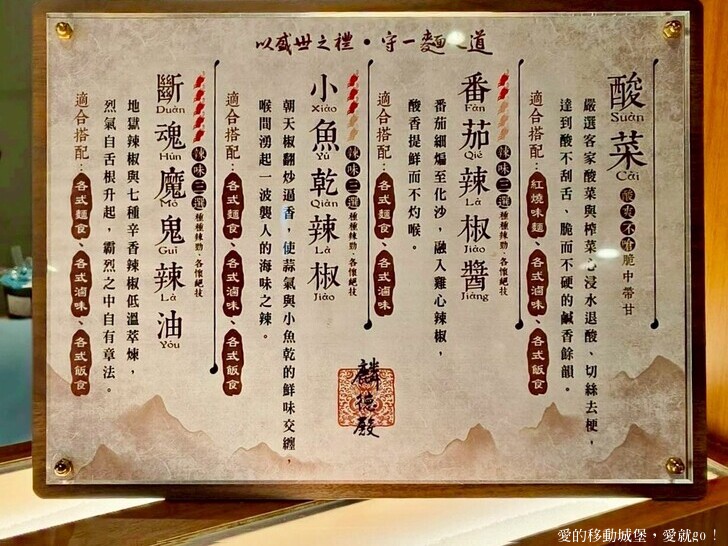 以盛世之禮•守一麵之道
酸菜
Suān Cài
酸爽不嗆脆中帶甘
嚴選客家酸菜與榨菜心浸水退酸、切絲去梗，
達到酸不刮舌、脆而不硬的鹹香餘韻。
適合搭配：紅燒味麵、各式滷味、各式飯食
番茄辣椒醬
Fān Qié Là Jiāo Jiàng
辣味三選
種種辣勁、各懷絕技
番茄細煸至化沙，融入雞心辣椒，
酸香提鮮而不灼喉。
適合搭配：各式麵食、各式滷味、各式飯食
小魚乾辣椒
Xiǎo Yú Qiàn Là Jiāo
辣味三選
種種辣勁、各懷絕技
朝天椒翻炒逼香，使蒜氣與小魚乾的鮮味交纏，
喉間湧起一波襲人的海味之辣。
適合搭配：各式麵食、各式滷味、各式飯食
斷魂魔鬼辣油
Duàn Hún Mó Guǐ Là Yóu
辣味三選
種種辣勁、各懷絕技
地獄辣椒與七種辛香辣椒低溫萃煉，
烈氣自舌根升起，霸烈之中自有章法。
適合搭配：各式麵食、各式滷味、各式飯食
麟德殿
愛的移動城堡，愛就go！